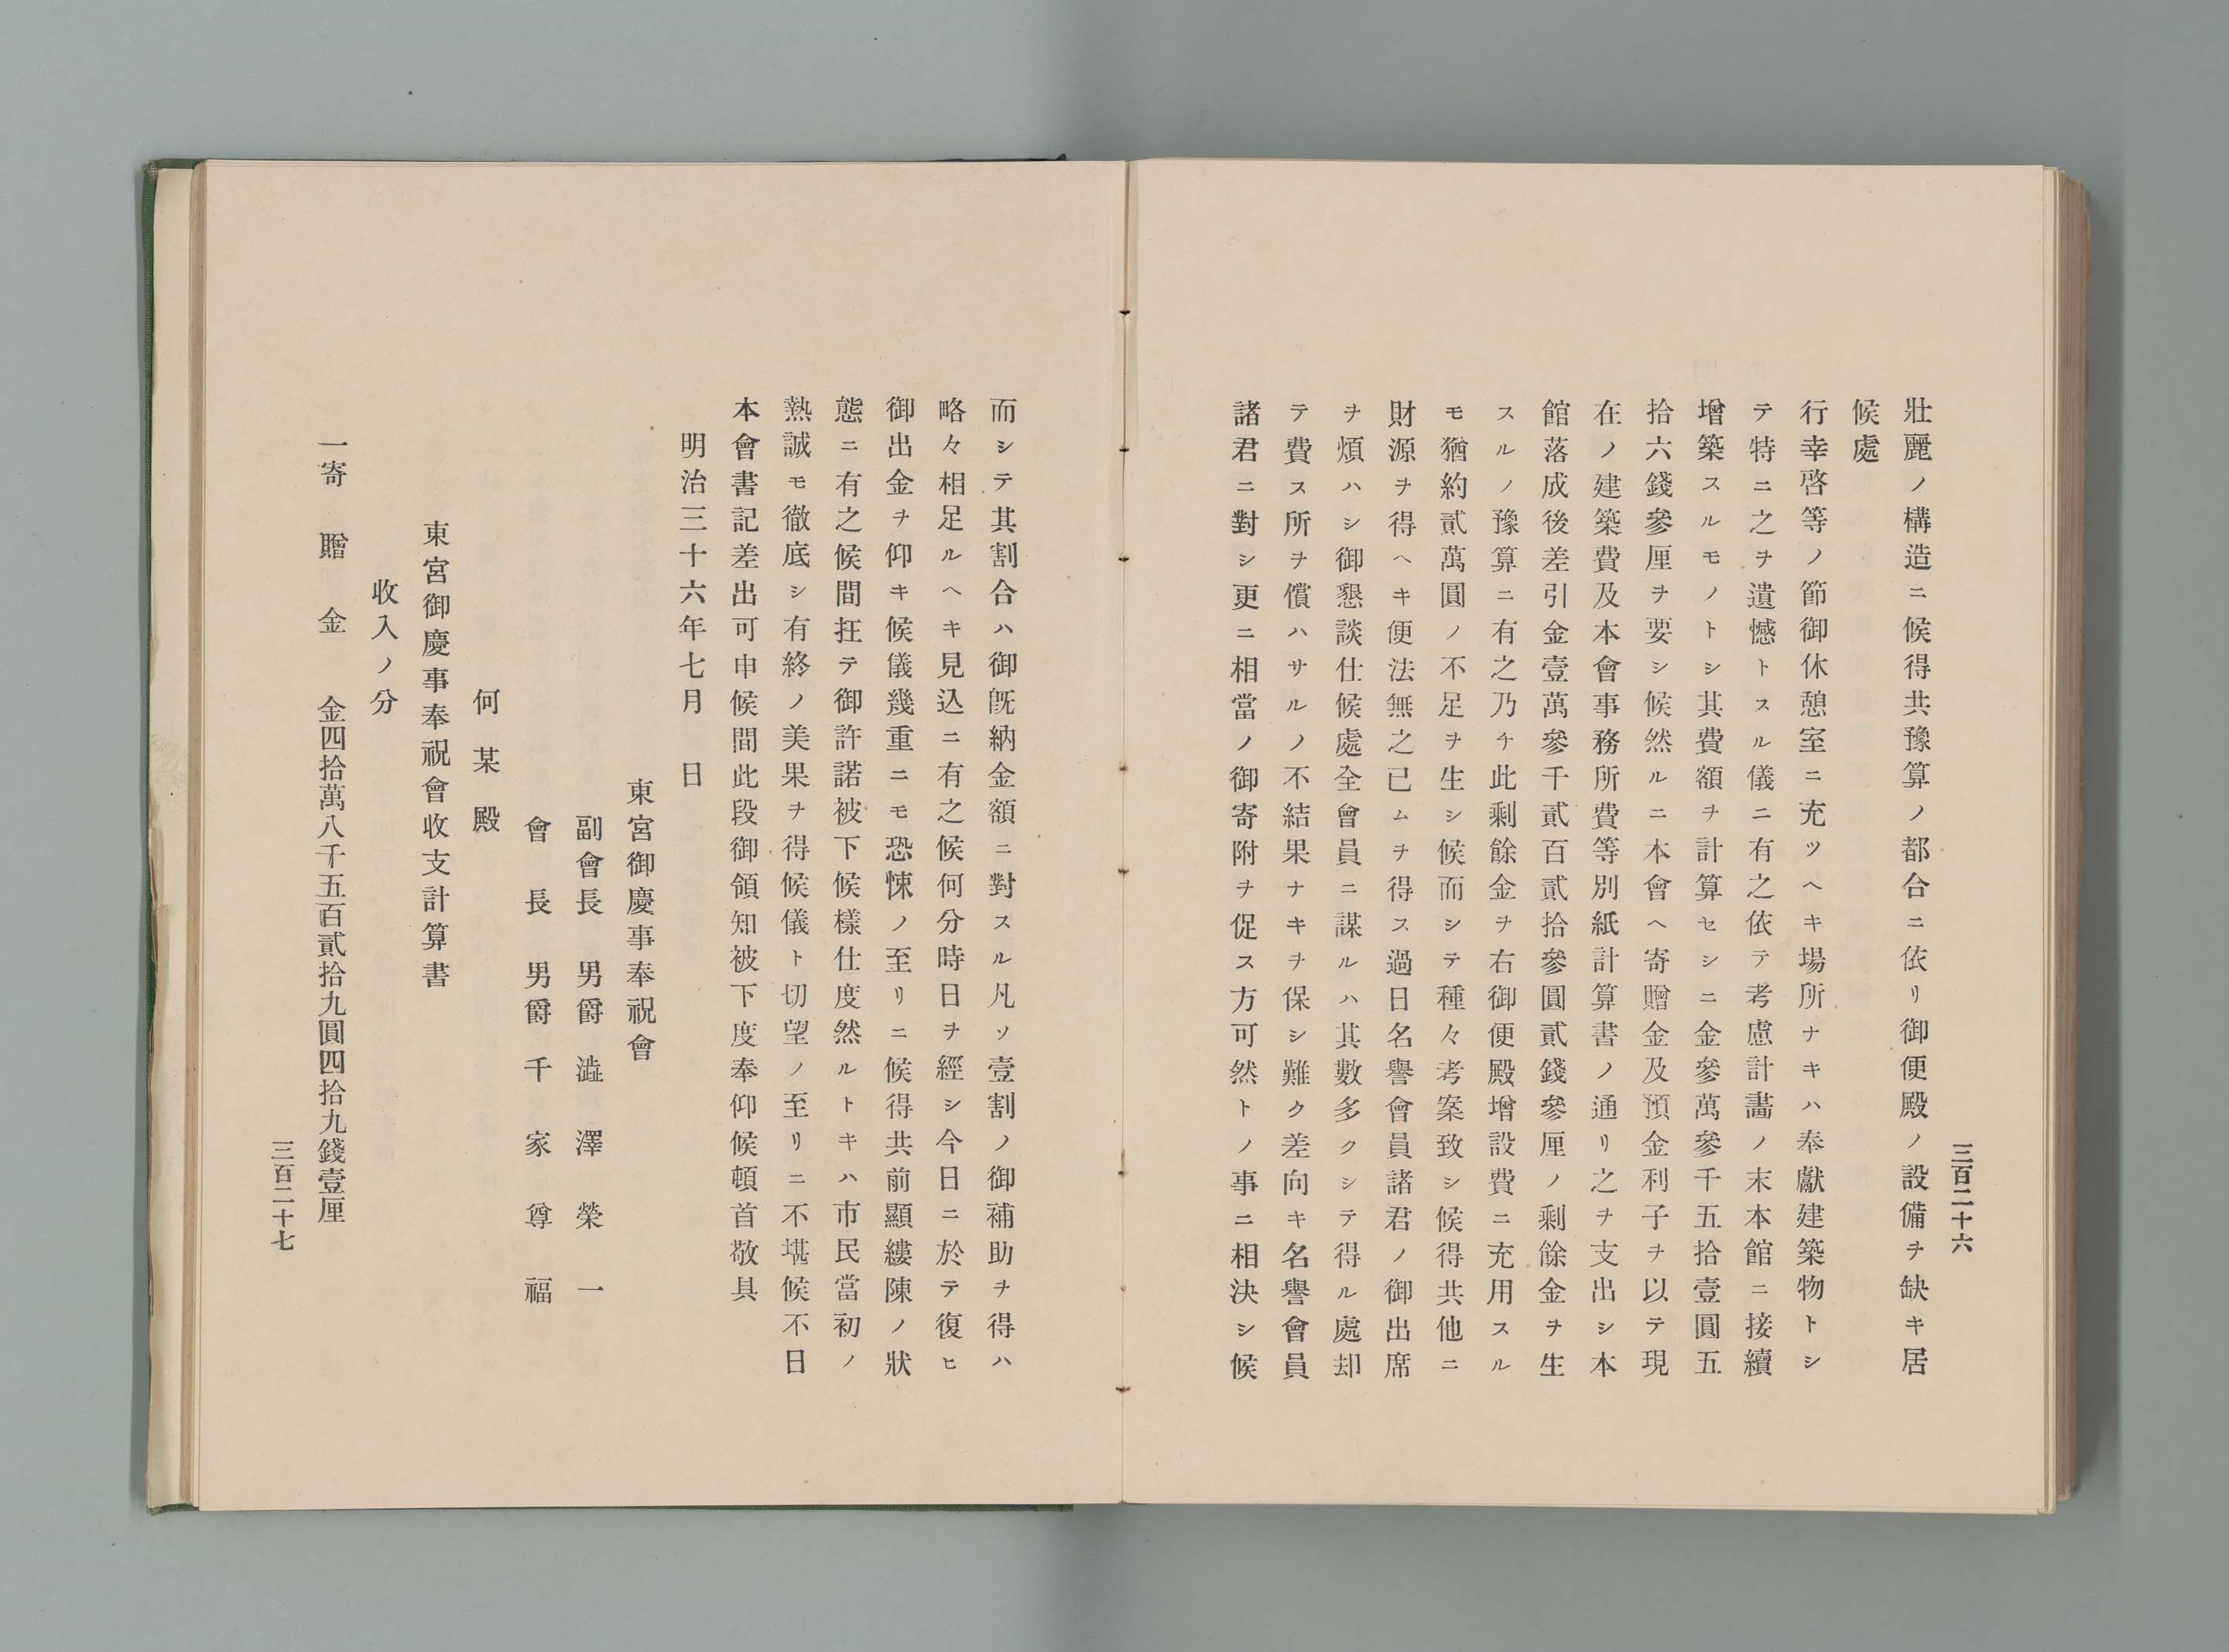 三百二十六
壯麗ノ構造ニ候得共豫算ノ都合ニ依リ御便殿ノ設備ヲ缺キ居
候處
行幸啓等ノ節御休憩室ニ充ツヘキ場所ナキハ奉獻建築物トシ
テ特ニ之ヲ遺憾トスル儀ニ有之依テ考慮計畵ノ末本館ニ接續
增築スルモノトシ其費額ヲ計算セシニ金參萬參千五拾壹圓五
拾六錢參厘ヲ要シ候然ルニ本會ヘ寄贈金及預金利子ヲ以テ現
在ノ建築費及本會事務所費等別紙計算書ノ通リ之ヲ支出シ本
館落成後差引金壹萬參千貳百貳拾參圓貳錢參厘ノ剩餘金ヲ生
スルノ豫算ニ有之乃チ此剩餘金ヲ右御便殿增設費ニ充用スル
モ猶約貳萬圓ノ不足ヲ生シ候而シテ種々考案致シ候得共他ニ
財源ヲ得ヘキ便法無之已ムヲ得ス過日名譽會員諸君ノ御出席
ヲ煩ハシ御懇談仕候處全會員ニ謀ルハ其數多クシテ得ル處却
テ費ス所ヲ償ハサルノ不結果ナキヲ保シ難ク差向キ名譽會員
諸君ニ對シ更ニ相當ノ御寄附ヲ促ス方可然トノ事ニ相決シ候
而シテ其割合ハ御既納金額ニ對スル凡ソ壹割ノ御補助ヲ得ハ
略々相足ルヘキ見込ニ有之候何分時日ヲ經シ今日ニ於テ復ヒ
御出金ヲ仰キ候儀幾重ニモ恐悚ノ至リニ候得共前顯縷陳ノ狀
態ニ有之候間抂テ御許諾被下候樣仕度然ルトキハ市民當初ノ
熱誠モ徹底シ有終ノ美果ヲ得候儀ト切望ノ至リニ不堪候不日
本會書記差出可申候間此段御領知被下度奉仰候頓首敬具
明治三十六年七月 日
東宮御慶事奉祝會
副會長 男爵 澁澤榮一
會長 男爵 千家尊福
何某殿
東宮御慶事奉祝會收支計算書
收入ノ分
一寄贈金 金四拾萬八千五百貳拾九圓四拾九錢壹厘
三百二十七